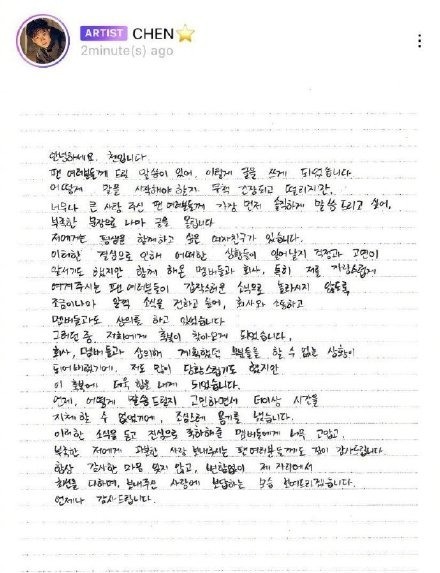 ARTIST CHEN⭐
2minute(s) ago
안녕하세요. 첸입니다.
팬 여러분들께 드릴 말씀이 있어, 이렇게 글을 쓰게 되었습니다.
어떻게 말을 시작해야 할지 무척 긴장되고 떨리지만,
너무나 큰 사랑 주신 팬 여러분들께 가장 먼저 솔직하게 말씀드리고 싶어,
부족한 문장으로나마 글을 올립니다.
저에게는 평생을 함께하고 싶은 여자친구가 있습니다.
이러한 결심으로 인해 어떠한 상황들이 일어날지 걱정과 고민이
앞서기도 했지만 함께 해온 멤버들과 회사, 특히 저를 자랑스럽게
여겨주시는 팬 여러분들이 갑작스러운 소식으로 놀라시지 않도록
조금이나마 일찍 소식을 전하고 싶어, 회사와 소통하고
멤버들과도 상의를 하고 있었습니다.
그러던 중, 저희에게 축복이 찾아오게 되었습니다.
회사, 멤버들과 상의해 계획했던 부분들을 할 수 없는 상황이
되어버렸기에, 저도 많이 당황스럽기도 했지만
이 축복에 더욱 힘을 내게 되었습니다.
언제, 어떻게 말씀드릴지 고민하면서 더이상 시간을
지체할 수 없었기에, 조심스레 용기를 냈습니다.
이러한 소식을 듣고 진심으로 축하해준 멤버들에게 너무 고맙고,
부족한 저에게 과분한 사랑 보내주시는 팬 여러분들께도 깊이 감사드립니다.
항상 감사한 마음 잊지 않고, 변함없이 제 자리에서
최선을 다하며, 보내주신 사랑에 보답하는 모습 보여드리겠습니다.
언제나 감사드립니다.